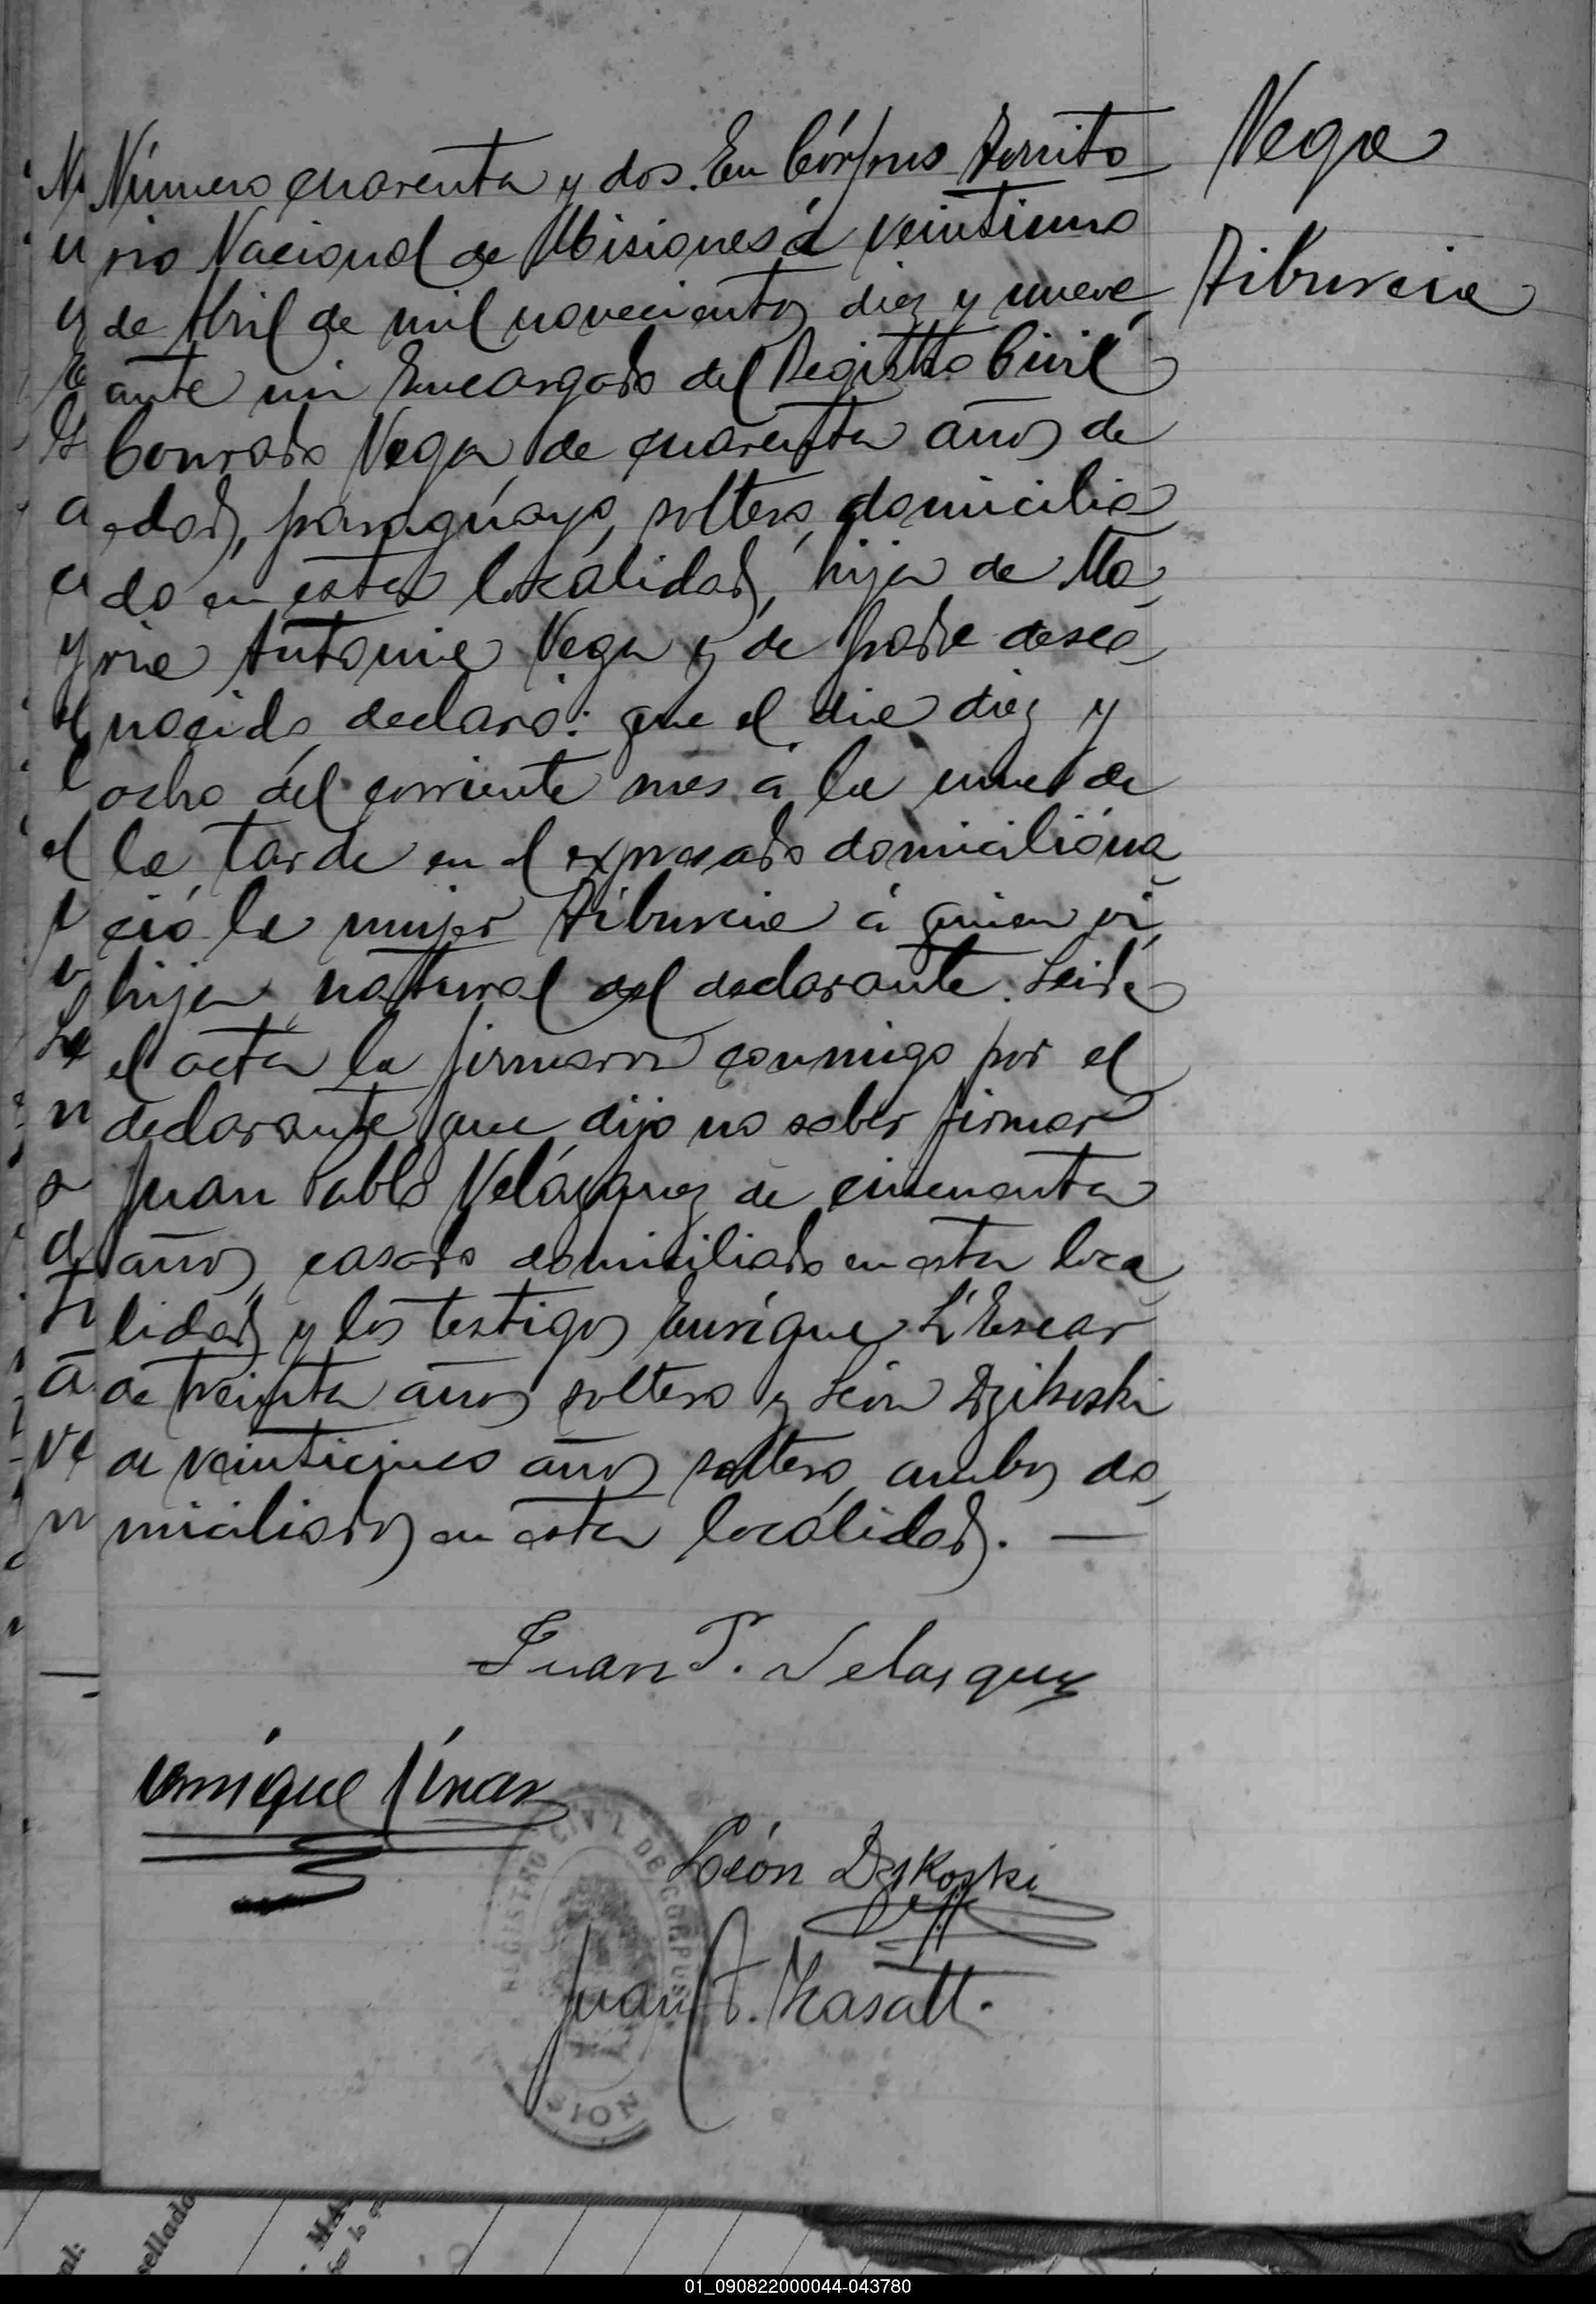 Vega
Tiburcia
Número cuarenta y dos. En Córpus Territo
rio Nacional de Misiones á veintiuno
de Abril de mil novecientos diez y nueve,
ante mi Encargado del Registro Civil
Conrado Vega de cuarenta años de
edad, paraguayo, soltero, domicilia
do en esta localidad, hijo de Ma
ria Antonia Vega y de padre desco
nocido, declaró: que el dia diez y
ocho del corriente mes á la una de
la tarde en el expresado domicilio na
ció la mujer Tiburcia á quien vi,
hija natural del declarante. Leida
el acta la firmaron conmigo por el
declarante que dijo no saber firmar
Juan Pablo Velázquez de cincuenta
años, casado domiciliado en esta loca
lidad y los testigos Enrique L'Escar
de treinta años soltero y León Dzikoski
de veinticinco años soltero, ambos do
miciliados en esta localidad. —
Juan P. Velasquez
Enrique
León Dzikoski
Juan
REGISTRO CIVIL DE CORPUS
01_090822000044-043780